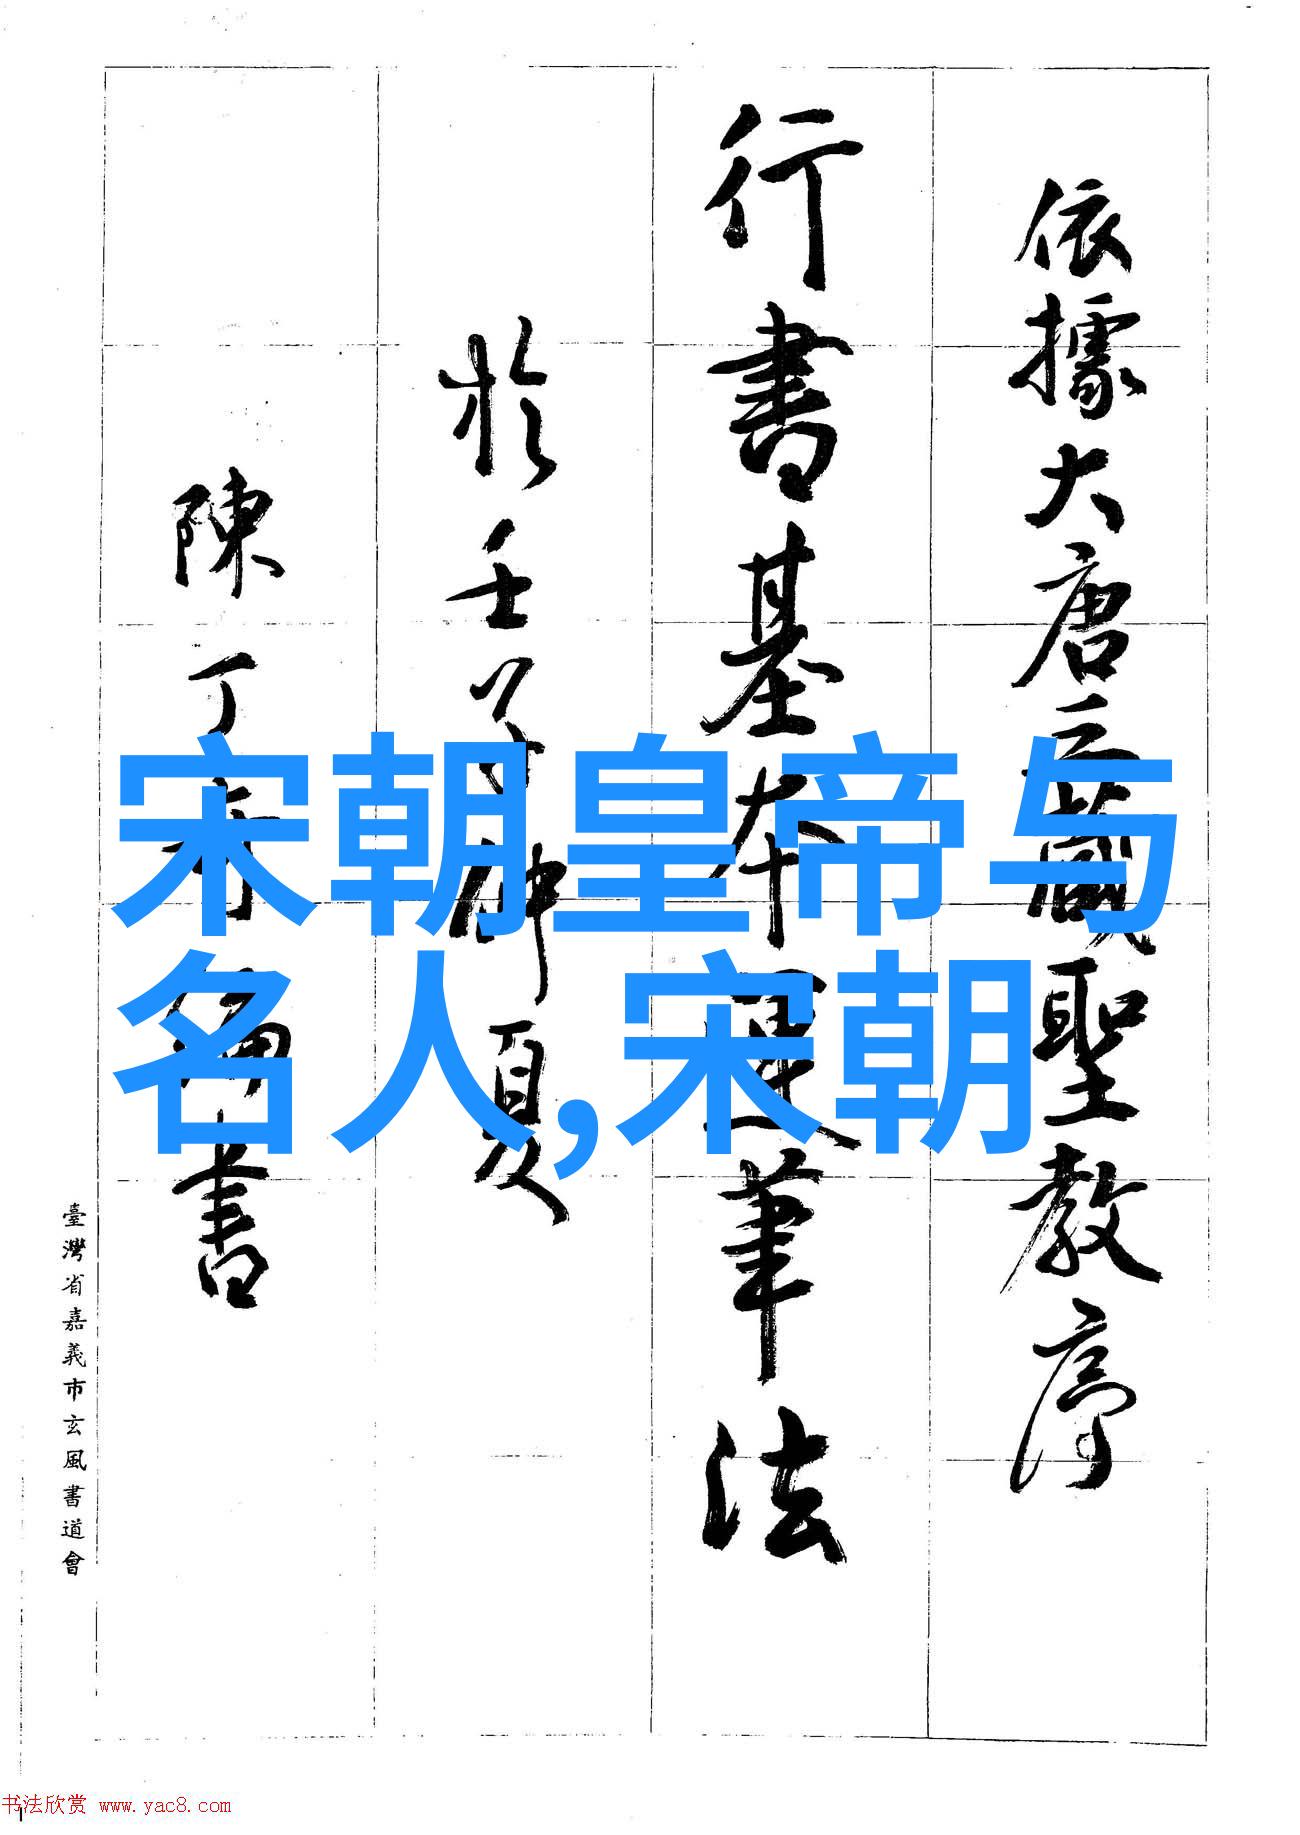 依據大唐三藏聖教序
行書基本運筆法
於壬子仲夏
陳丁奇編書
宋朝皇帝与
名人,宋朝
臺灣省嘉義市玄風書道會
书法欣赏 www.yac8.com